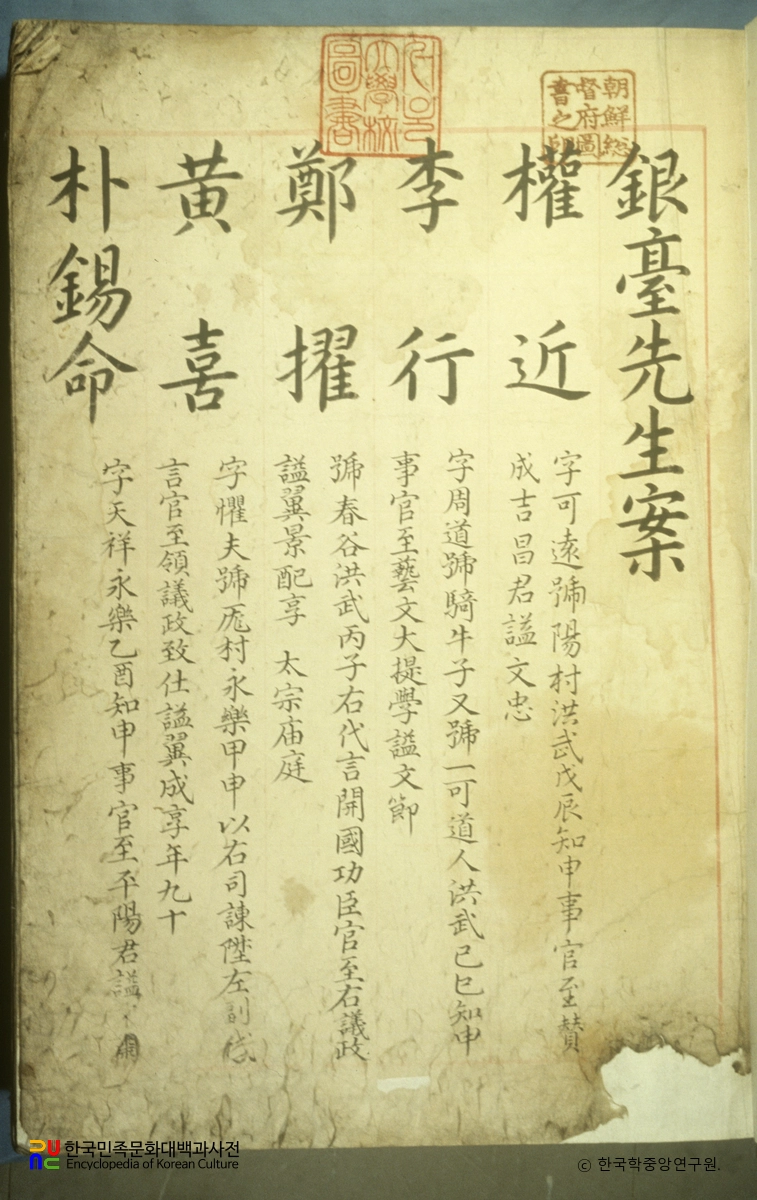 銀臺先生案
權近
字可遠號陽村洪武戊辰知申事官至贊
成吉昌君謚文忠
李行
字周道號騎牛子又號一可道人洪武己巳知申
事官至藝文大提學謚文節
鄭擢
號春谷洪武丙子右代言開國功臣官至右議政
謚翼景配享 太宗庙庭
黃喜
字懼夫號厖村永樂甲申以右司諫陞左副代
言官至領議政致仕謚翼成享年九十
朴錫命
字天祥永樂乙酉知申事官至平陽君謚
朝鮮総
督府圖
書之印
大學校
圖書
한국민족문화대백과사전
Encyclopedia of Korean Culture
© 한국학중앙연구원.